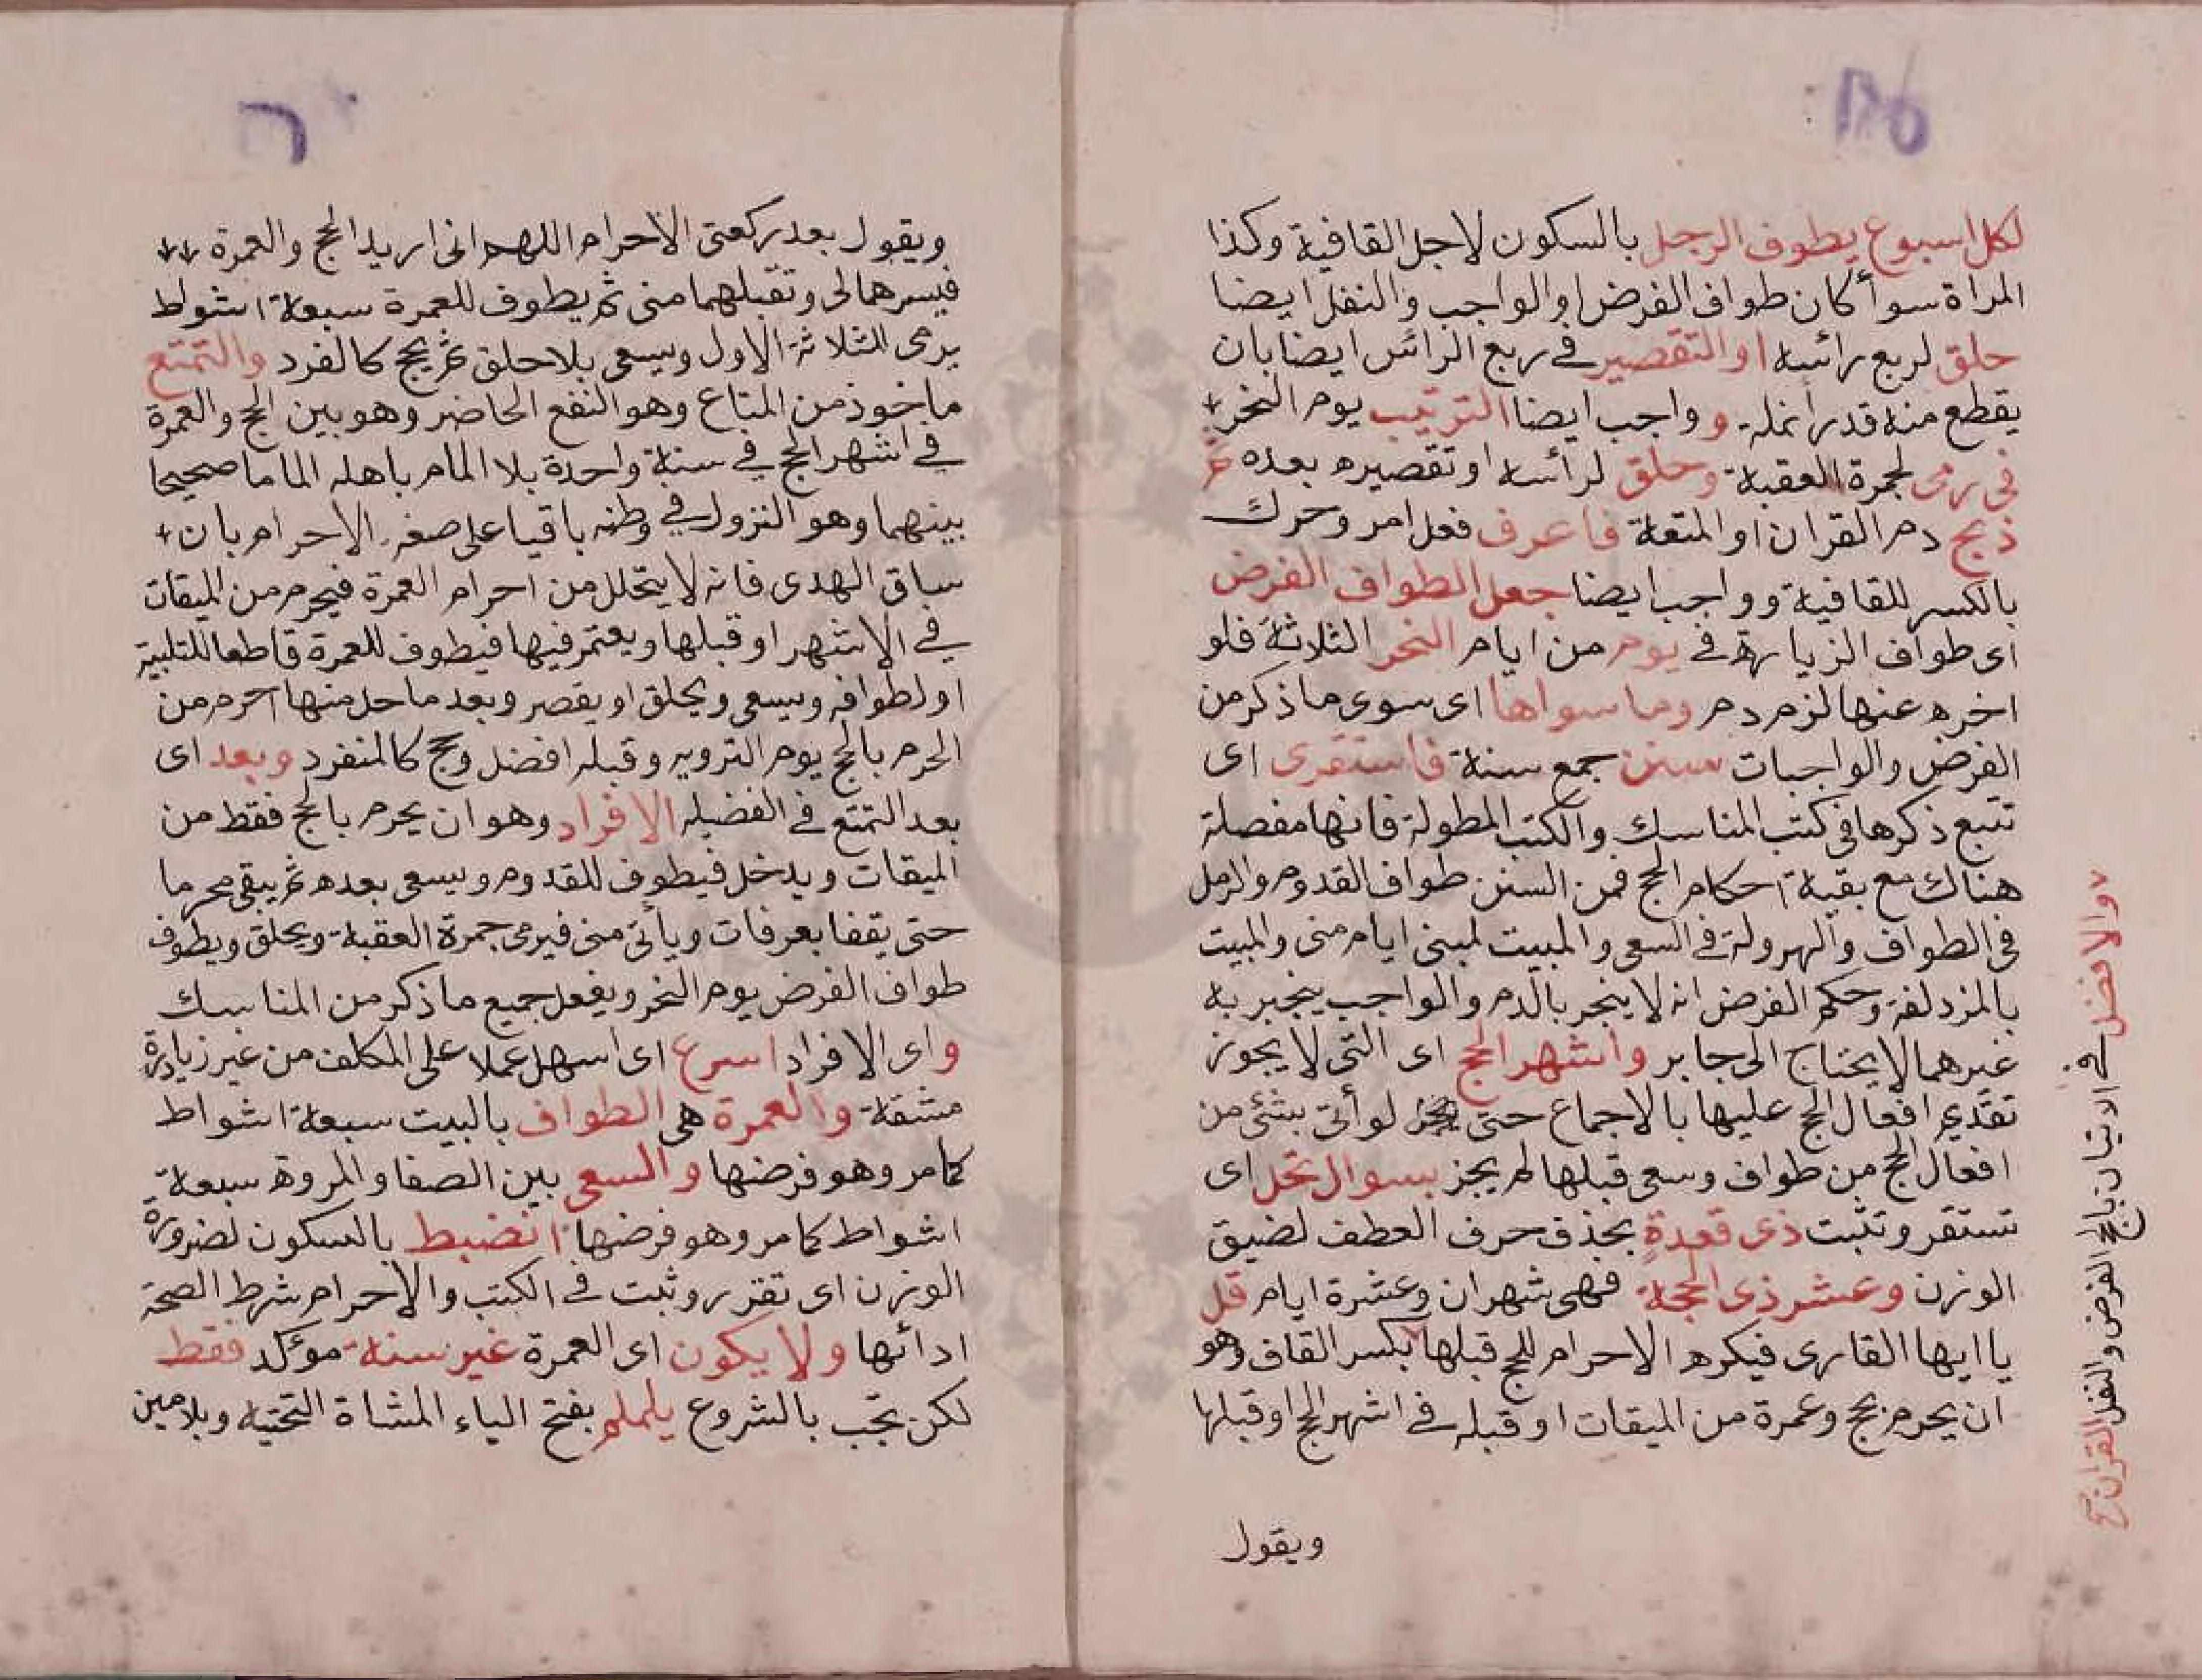 لكل اسبوع يطوف الرجل بالسكون لاجل القافية وكذا
المراة سوأ كان طواف الفرض او الواجب والنفل ايضا
حلق لربع رائسه او التقصير في ربع الرائس ايضا بان
يقطع منه قدر انمله وواجب ايضا الترتيب يوم النحر
في رمى لجمرة العقبة وحلق لرأسه او تقصيره بعده ثم
ذبح دم القران او المتعة فاعرف فعل امر وحرك
بالكسر للقافية وواجب ايضا جعل الطواف الفرض
اى طواف الزيارة في يوم من ايام النحر الثلاثة فلو
اخره عنها لزم دم وما سواها اى سوى ما ذكر من
الفرض والواجبات سنن جمع سنة فاستقرى اى
تتبع ذكرها في كتب المناسك والكتب المطولة فانها مفصلة
هناك مع بقية احكام الحج فمن السنن طواف القدوم والرمل
في الطواف والهرولة في السعى والمبيت لمبنى ايام منى والمبيت
بالمزدلفة وحكم الفرض انه لا ينجبر بالدم والواجب ينجبر به
غيرهما لا يحتاج الى جابر واشهر الحج اى التى لا يجوز
تقديم افعال الحج عليها بالاجماع حتى لو أتى بشئ من
افعال الحج من طواف وسعى قبلها لم يجز بسوال تحل اى
تستقر وتثبت ذى قعدة بحذف حرف العطف لضيق
الوزن وعشر ذى الحجة فهى شهران وعشرة ايام قل
يا ايها القارى فيكره الاحرام للحج قبلها بكسر القاف وهو
ان يحرم بحج وعمرة من الميقات او قبله في اشهر الحج او قبلها
ويقول
والافضل في الاتيان بالحج الفرض والنفل القران
ويقول بعد ركعتى الاحرام اللهم انى اريد الحج والعمرة
فيسرهما لى وتقبلهما منى ثم يطوف للعمرة سبعة اشواط
يرمى الثلاثة الاول ويسعى بلا حلق ثم يحج كالفرد والتمتع
ماخوذ من المتاع وهو النفع الحاضر وهو بين الحج والعمرة
في اشهر الحج في سنة واحدة بلا المام باهله الماما صحيحا
بينهما وهو النزول في وطنه باقيا على صفة الاحرام بان
ساق الهدى فانه لا يتحلل من احرام العمرة فيحرم من الميقات
في الاشهر او قبلها ويعتمر فيها فيطوف للعمرة قاطعا للتلبية
اول طوافه ويسعى ويحلق او يقصر وبعد ما حل منها احرم من
الحرم بالحج يوم الترويه وقبله افضل وحج كالمنفرد وبعد اى
بعد التمتع في الفضيله الافراد وهو ان يحرم بالحج فقط من
الميقات ويدخل فيطوف للقدوم ويسعى بعده ثم يبقى محرما
حتى يقفا بعرفات ويأتى منى فيرمى جمرة العقبة ويحلق ويطوف
طواف الفرض يوم النحر ويفعل جميع ما ذكر من المناسك
واى الافراد اسرع اى اسهل عملا على المكلف من غير زيادة
مشقة والعمرة هى الطواف بالبيت سبعة اشواط
كما مر وهو فرضها والسعى بين الصفا والمروة سبعة
اشواط كما مر وهو فرضها انضبط بالسكون لضرورة
الوزن اى تقرر وثبت في الكتب والاحرام شرط الصحة
ادائها ولا يكون اى العمرة غير سنة مؤكد فقط
لكن تجب بالشروع يلملم بفتح الياء المشاة التحتيه وبلامين